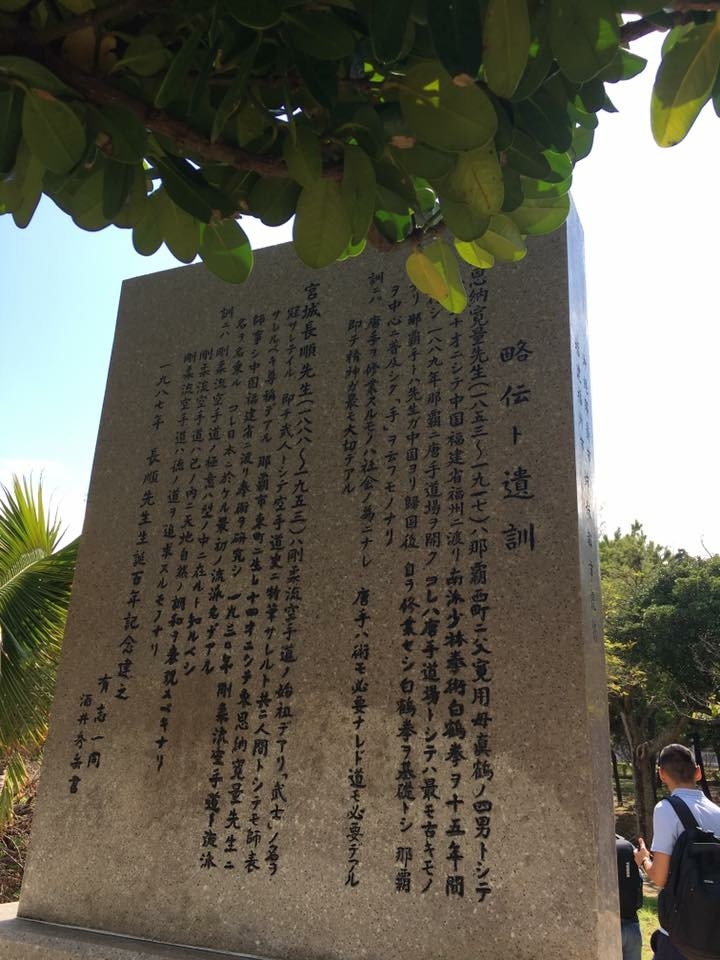 略伝ト遺訓
恩納寛量先生(一八五三~一九一七)ハ那覇西町ニ父寛用母真鶴ノ四男トシテ
十才ニシテ中国福建省福州ニ渡リ南派少林拳術白鶴拳ヲ十五年間
シ一八八九年那覇ニ唐手道場ヲ開ク コレハ唐手道場トシテハ最モ古キモノ
リ那覇手トハ先生ガ中国ヨリ帰国後 自ラ修業セシ白鶴拳ヲ基礎トシ 那覇
ヲ中心ニ普及シタ「手」ヲ云フモノナリ
訓ニハ 唐手ヲ修業スルモノハ社会ノ為ニナレ 唐手ハ術モ必要ナレド道モ必要デアル
即チ精神ガ最モ大切デアル
宮城長順先生(一八八八~一九五三)ハ剛柔流空手道ノ始祖デアリ「武士」ノ名ヲ
冠サレテイル 即チ武人トシテ空手道史ニ特筆サレルト共ニ人間トシテモ師表
サレルベキ尊称デアル 那覇市東町ニ生レ十四才ニシテ東恩納寛量先生ニ
師事シ中国福建省ニ渡リ拳術ヲ研究シ 一九三〇年 剛柔流空手道ト流派
名ヲ名乗ル コレ日本ニ於ケル最初ノ流派名デアル
訓ニハ 剛柔流空手道ノ極意ハ型ノ中ニ在ルト知ルベシ
剛柔流空手道ハ己ノ内ニ天地自然ノ調和ヲ表現スベキナリ
剛柔流空手道ハ徳ノ道ヲ追求スルモノナリ
一九八七年 長順先生生誕百年記念建之
有志一同
酒井秀岳書